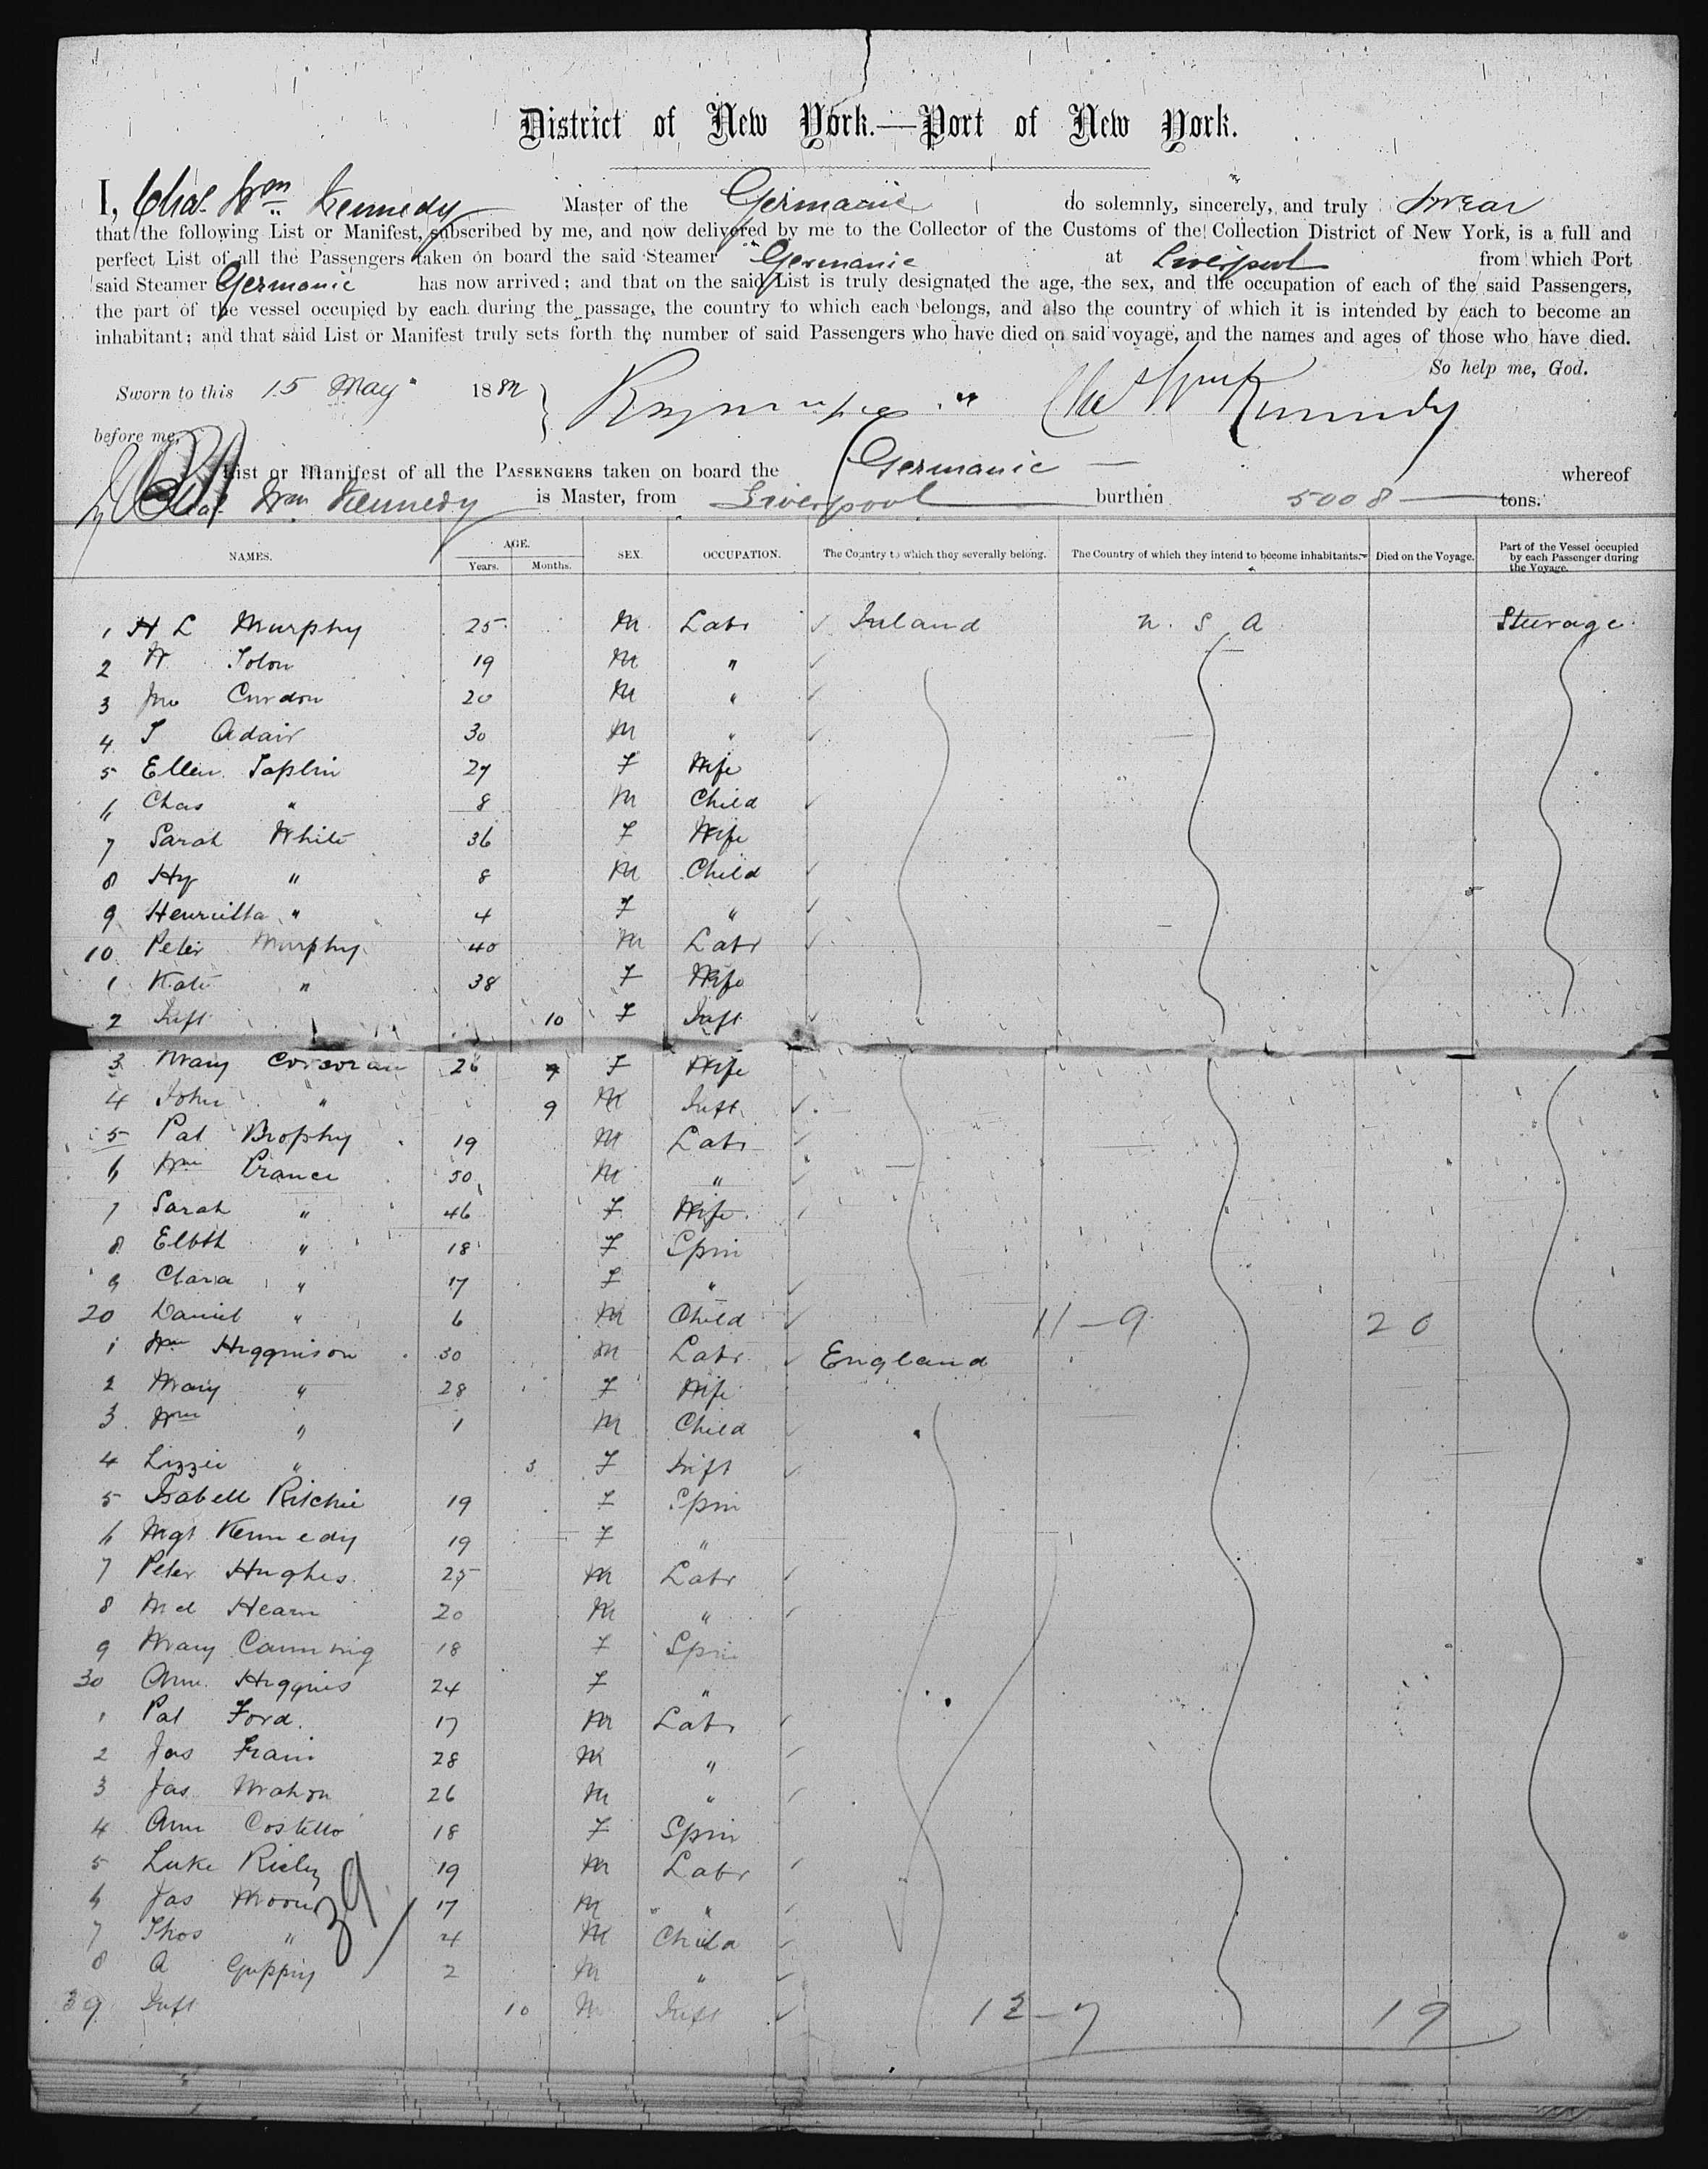 District of New York.—Port of New York.
I, Chas. Wm Kennedy Master of the Germanic do solemnly, sincerely, and truly swear
that the following List or Manifest, subscribed by me, and now delivered by me to the Collector of the Customs of the Collection District of New York, is a full and
perfect List of all the Passengers taken on board the said Steamer "Germanic at Liverpool from which Port
said Steamer Germanic has now arrived; and that on the said List is truly designated the age, the sex, and the occupation of each of the said Passengers,
the part of the vessel occupied by each during the passage, the country to which each belongs, and also the country of which it is intended by each to become an
inhabitant; and that said List or Manifest truly sets forth the number of said Passengers who have died on said voyage, and the names and ages of those who have died.
So help me, God.
Sworn to this 15 May 1882 Chas Wm Kennedy
before me,
List or Manifest of all the PASSENGERS taken on board the Germanic — whereof
Chas. Wm Kennedy is Master, from Liverpool burthen 5008 tons.
NAMES. AGE. Years. Months. SEX. OCCUPATION. The Country to which they severally belong. The Country of which they intend to become inhabitants. Died on the Voyage. Part of the Vessel occupied by each Passenger during the Voyage.
1 H L Murphy 25 M Labr Ireland U. S. A Steerage
2 W Tolon 19 M "
3 Jno Curdon 20 M "
4 T Adair 30 M "
5 Ellen Taplin 27 F Wife
6 Chas " 8 M Child
7 Sarah White 36 F Wife
8 Hy " 8 M Child
9 Henrietta " 4 F "
10 Peter Murphy 40 M Labr
1 Kate " 38 F Wife
2 Inft 10 F Inft
3 Mary Corcoran 26 F Wife
4 John " 9 M Inft
5 Pat Brophy 19 M Labr
6 Wm Prance 50 M "
7 Sarah " 46 F Wife
8 Elbth " 18 F Spin
9 Clara " 17 F "
20 Daniel " 6 M Child 11-9 20
1 Wm Higginson 30 M Labr England
2 Mary " 28 F Wife
3 Wm " 1 M Child
4 Lizzie " 3 F Inft
5 Isabell Ritchie 19 F Spin
6 Mgt Kennedy 19 F "
7 Peter Hughes 25 M Labr
8 Mcl Hearn 20 M "
9 Mary Canning 18 F Spin
30 Ann Higgins 24 F "
1 Pat Ford 17 M Labr
2 Jas Frain 28 M "
3 Jas Mahon 26 M "
4 Ann Costello 18 F Spin
5 Luke Rieley 19 M Labr
6 Jas Moore 17 M " "
7 Thos " 4 M Child
8 A Guppy 2 M "
39 Inft 10 M Inft 12-7 19
39